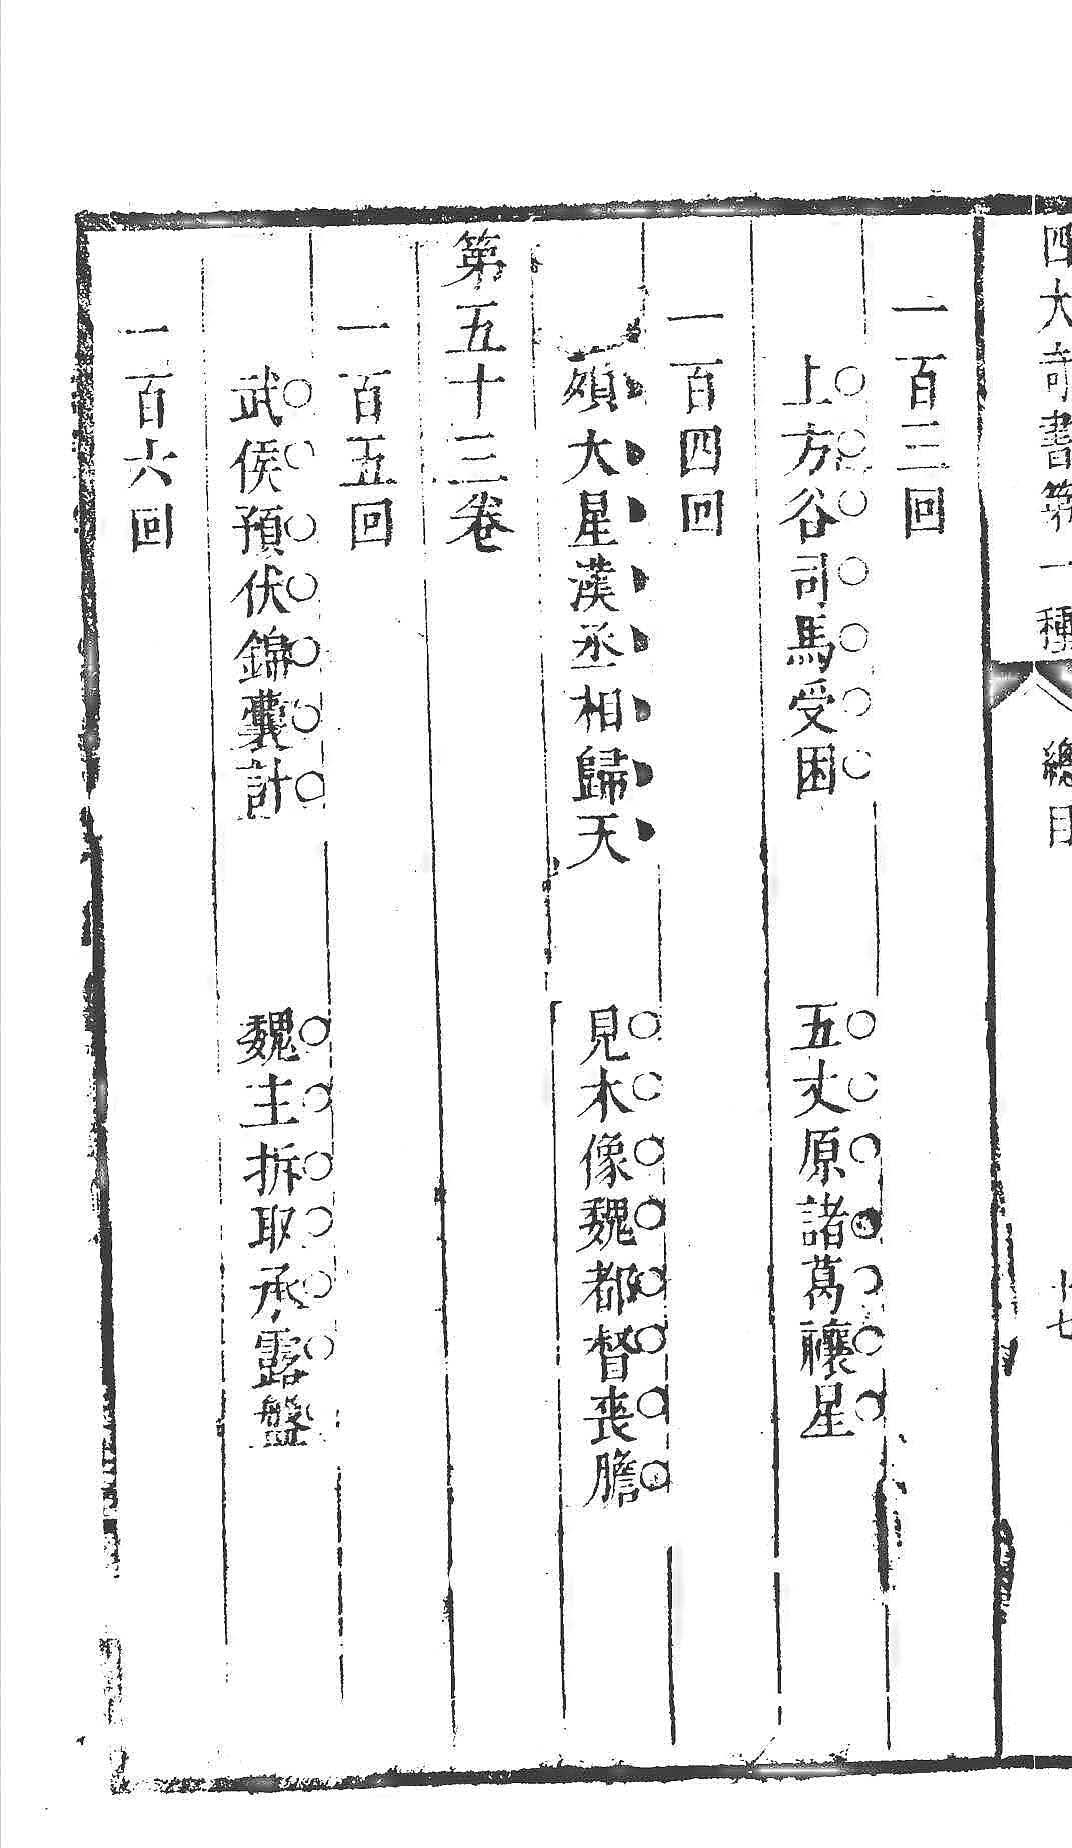 四大奇書第一種 總目 十七
一百三回
上方谷司馬受困 五丈原諸葛禳星
一百四回
殞大星漢丞相歸天 見木像魏都督喪膽
第五十三卷
一百五回
武侯預伏錦囊計 魏主拆取承露盤
一百六回